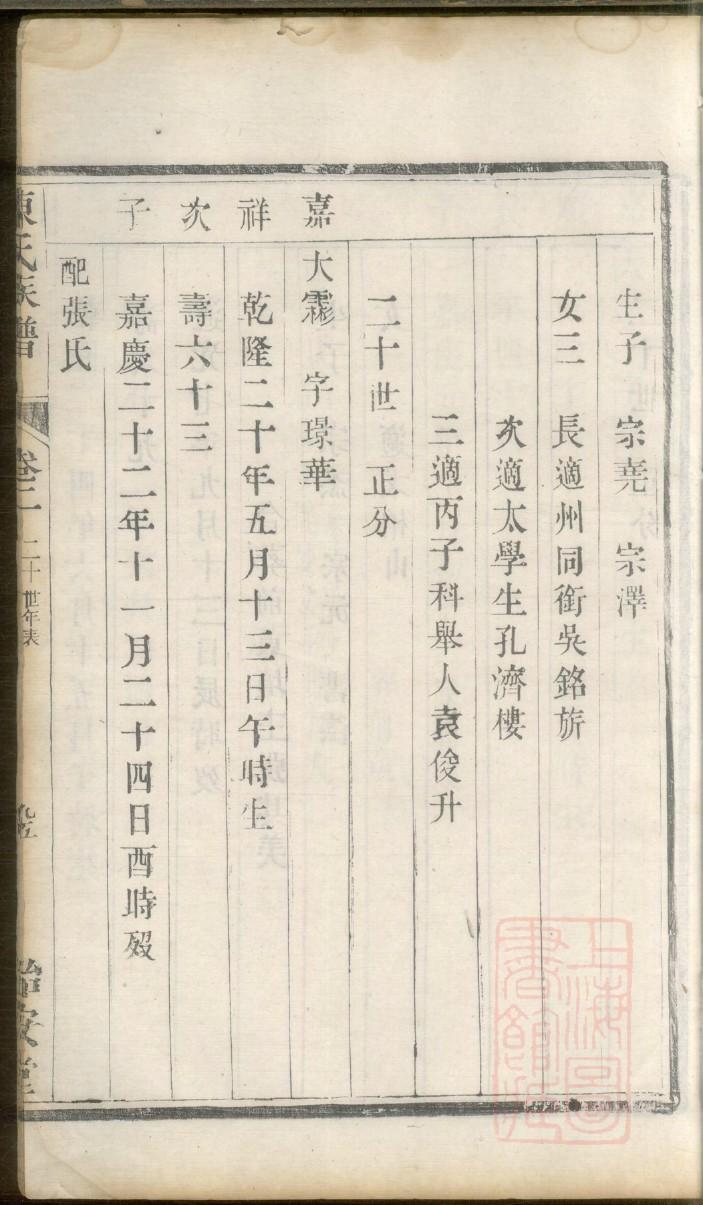 生子 宗堯 宗澤
女三 長適州同銜吳銘旂
次適太學生孔濟樓
三適丙子科舉人袁俊升
二十世 正分
嘉祥次子
大霦 字璟華
乾隆二十年五月十三日午時生
壽六十三
嘉慶二十二年十一月二十四日酉時歿
配張氏
陳氏族譜 卷二 二十世年表
上海圖書館藏